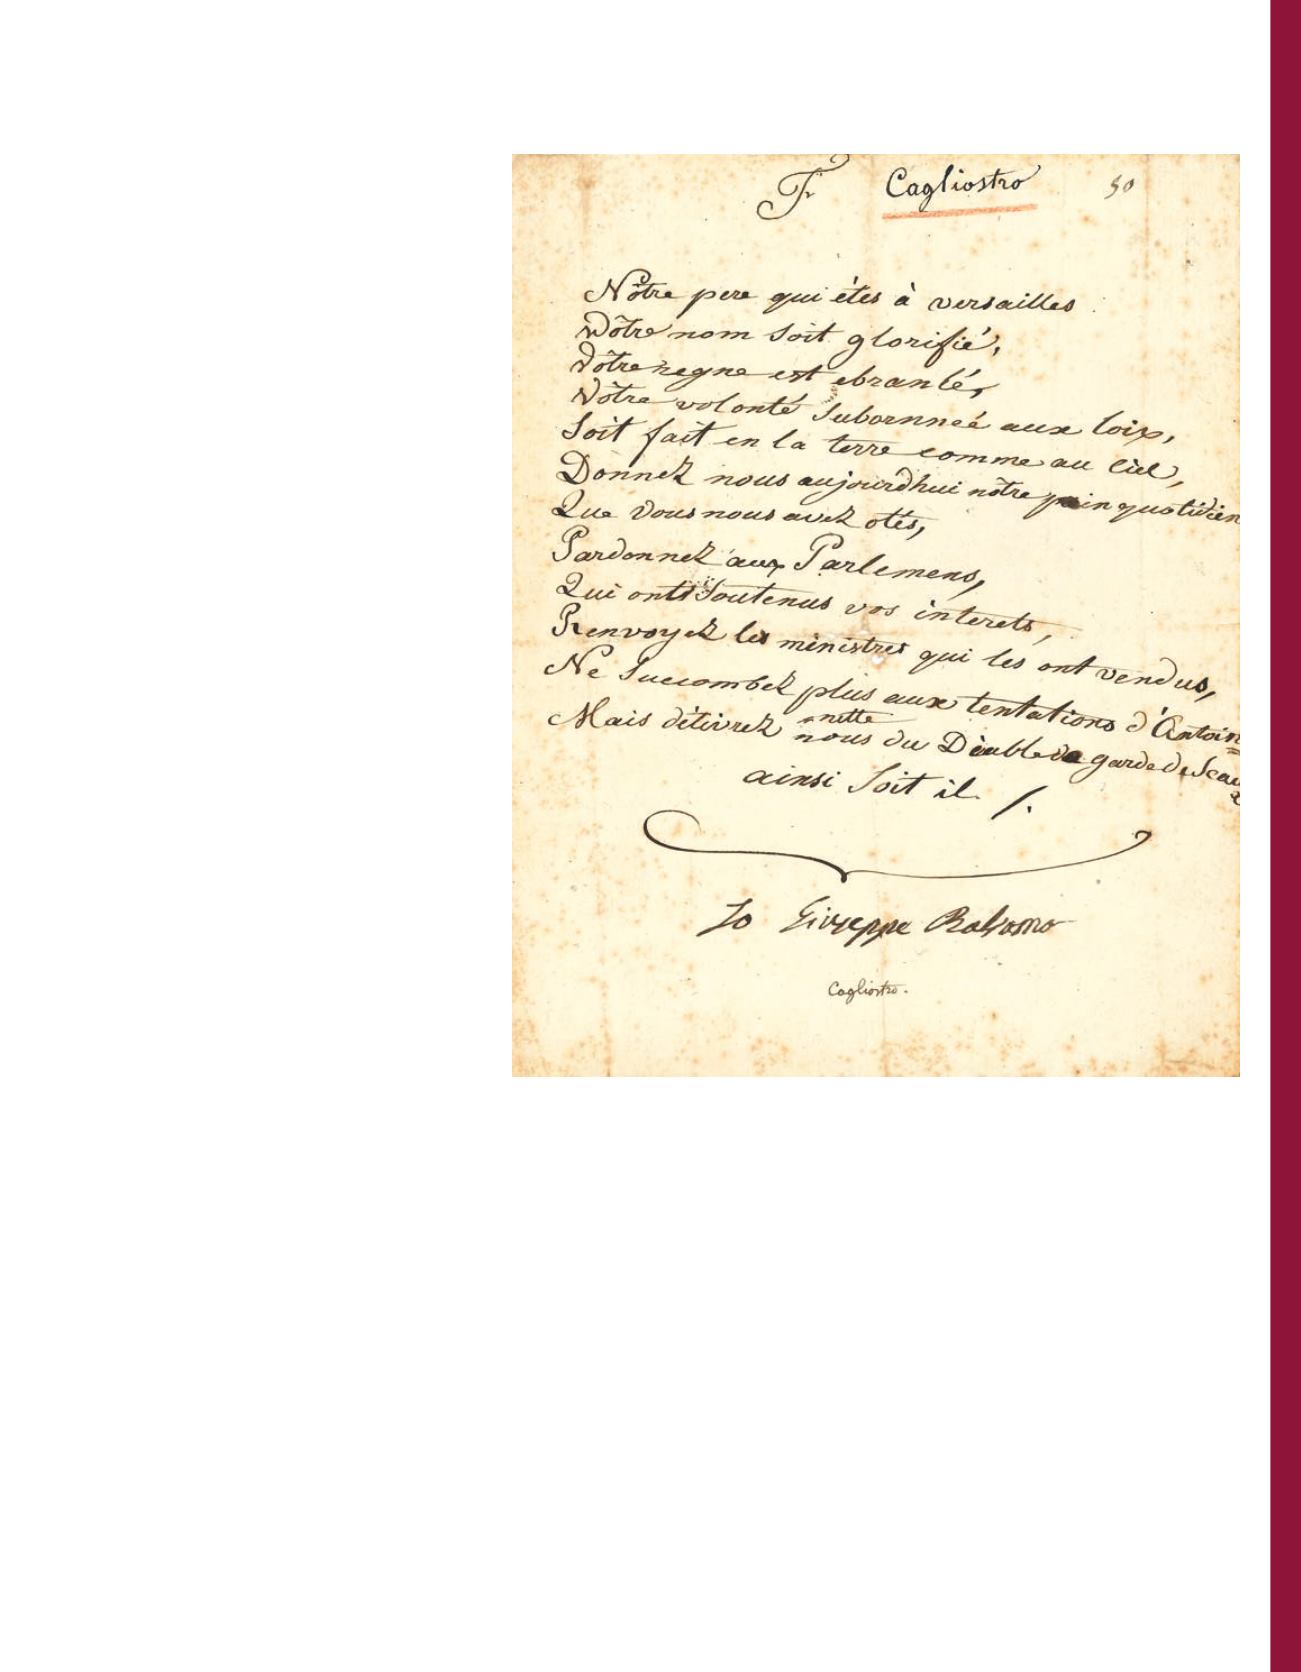 Fr Cagliostro 50
Nôtre pere qui étes à versailles
Vôtre nom soit glorifié,
Vôtre regne est ebranlé,
Vôtre volonté subornneé aux loix,
Soit fait en la terre comme au ciel,
Donnez nous aujourdhui nôtre pain quotidien
Que vous nous avez otés,
Pardonnez aux Parlemens,
Qui onts soutenus vos interets,
Renvoyez les ministres qui les ont vendus,
Ne succombez plus aux tentations d'Antoin=
nette
Mais délivrez nous du Diable de garde de Sceaux
ainsi soit il /.
Io Giuseppe Balsamo
Cagliostro.